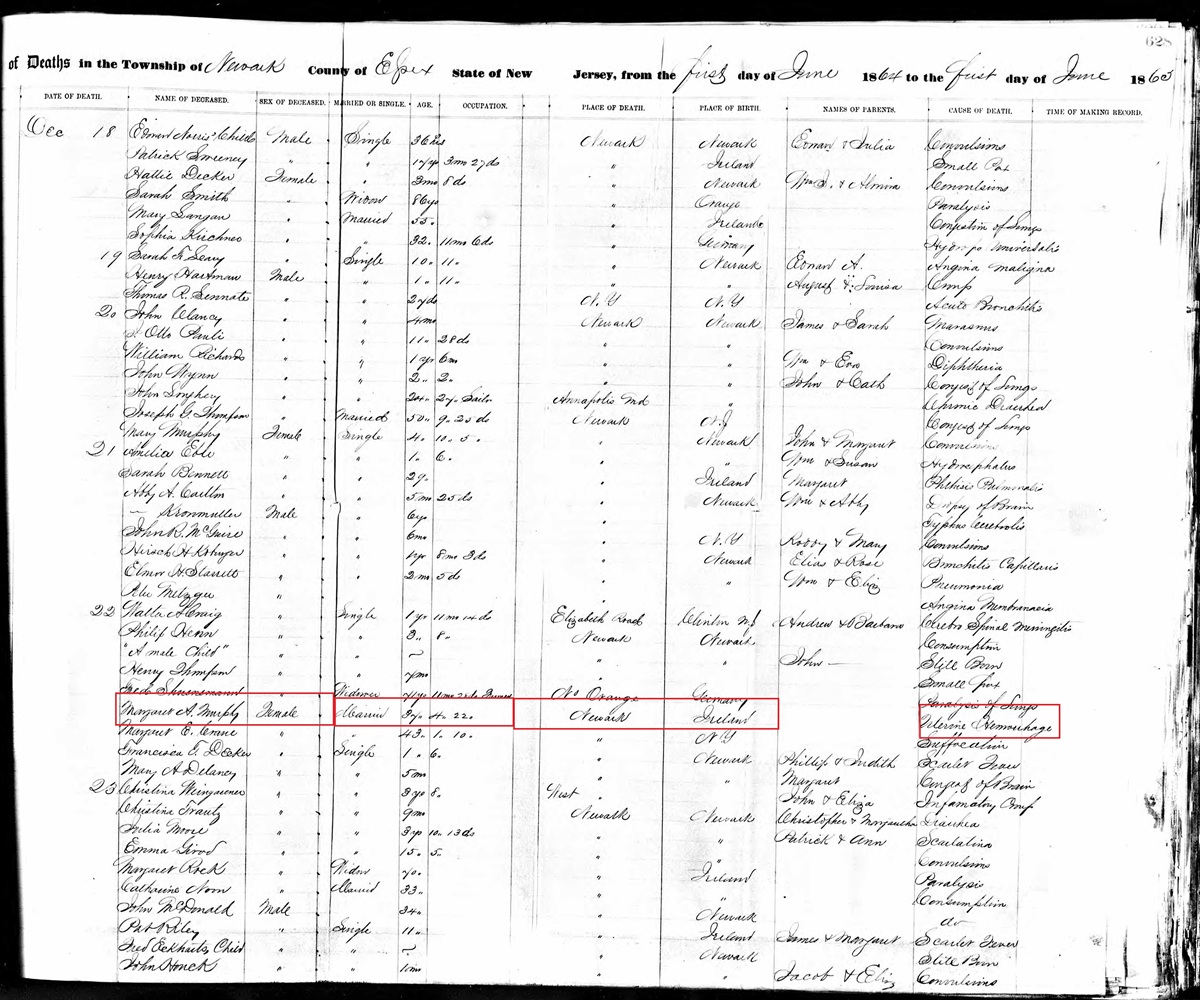 628
of Deaths in the Township of Newark County of Essex State of New Jersey, from the first day of June 1864 to the first day of June 1865
DATE OF DEATH. NAME OF DECEASED. SEX OF DECEASED. MARRIED OR SINGLE. AGE. OCCUPATION. PLACE OF DEATH. PLACE OF BIRTH. NAMES OF PARENTS. CAUSE OF DEATH. TIME OF MAKING RECORD.
Dec 18 Edward Norris' Child Male Single 36 hrs Newark Newark Edward & Julia Convulsions
Patrick Sweeney " " 17 yrs 3 mo 27 ds " Ireland Small Pox
Hattie Decker Female " 3 mo 8 ds " Newark Wm S. & Almira Convulsions
Sarah Smith " Widow 86 yrs " Orange Paralysis
Mary Langan " Married 55 " Ireland Congestion of Lungs
Sophia Kirchner " " 32 " 11 mo 6 ds " Germany Hydrops Universalis
19 Sarah F. Seary " Single 10 " 11 " " Newark Edward A. Angina Maligna
Henry Hartman Male " 1 " 11 " " " August & Louisa Croup
Thomas R. Sennate " " 27 ds N.Y N.Y Acute Bronchitis
20 John Clancy " " 4 mo Newark Newark James & Sarah Marasmus
Otto Pauli " " 11 " 28 ds " " Convulsions
William Richards " " 1 yr 6 mo " " Wm & Eva Diphtheria
John Wynn " " 2 " 2 " " " John & Cath Congest of Lungs
John " " 24 " 27 Sailor Annapolis Md " Chronic Diarrhea
Joseph G. Thompson " Married 50 " 9 " 25 ds Newark N.J Congest of Lungs
Mary Murphy Female Single 4 " 10 " 5 " " Newark John & Margaret Convulsions
21 Amelia Eble " " 1 " 6 " " " Wm & Susan Hydrocephalus
Sarah Bennett " " 29 " " Ireland Margaret Phthisis Pulmonalis
Abby A. Carlton " " 5 mo 25 ds " Newark Wm & Abby Dropsy of Brain
— Kronmuller Male " 6 yrs " Typhus Cerebralis
John R. McGuire " " 6 mo " N.Y & Mary Convulsions
Hirsch H " " 1 yr 8 mo 3 ds " Newark Elias & Rose Bronchitis Capillaris
Elmer H. Starrett " " 2 mo 5 ds " " Wm & Eliz Pneumonia
Peter Metzger " " Angina Membranacia
22 Walter Craig " Single 1 yr 11 mo 14 ds Elizabeth Road Clinton N.J Andrew & Barbara Cerebro Spinal Meningitis
Philip Henn " " 3 " 8 " Newark Newark Consumption
"A male Child" " " ~ " " John — Still Born
Henry Thompson " " 7 mo " " Small Pox
Fredk " Widower 71 yrs 11 mo 28 ds No Orange Germany Paralysis of Lungs
Margaret A. Murphy Female Married 37 " 4 " 22 " Newark Ireland Uterine Hemorrhage
Margaret E. Crane " " 43 " 1 " 10 " " N.Y Suffocation
Francisca E. Decker " Single 1 " 6 " " Newark Phillip & Judith Scarlet Fever
Mary A. Delaney " " 5 mo " " Margaret Congest of Brain
23 Christina " " 3 yrs 8 " West " John & Eliza Inflamatory Croup
Christina Trautz " " 9 mo Newark Newark Christopher & Margaretha Diarrhea
Julia Moore " " 3 yrs 10 " 13 ds " " Patrick & Ann Scarlatina
Emma Girod " " 15 " 5 " " " Convulsions
Margaret Rock " Widow 70 " " Ireland Paralysis
Catharine Noon " Married 33 " " " Consumption
John McDonald Male " 34 " " Newark do
Pat Riley " Single 11 " " Ireland James & Margaret Scarlet Fever
Fred Eckhart's Child " " ~ " Newark Still Born
John Houck " " 10 mo " " Jacob & Eliz Convulsions